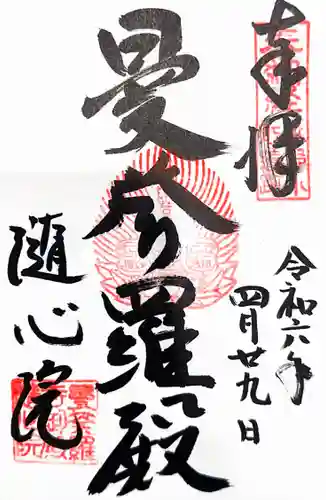 奉拝
令和六年
四月廿九日
曼荼羅殿
隨心院